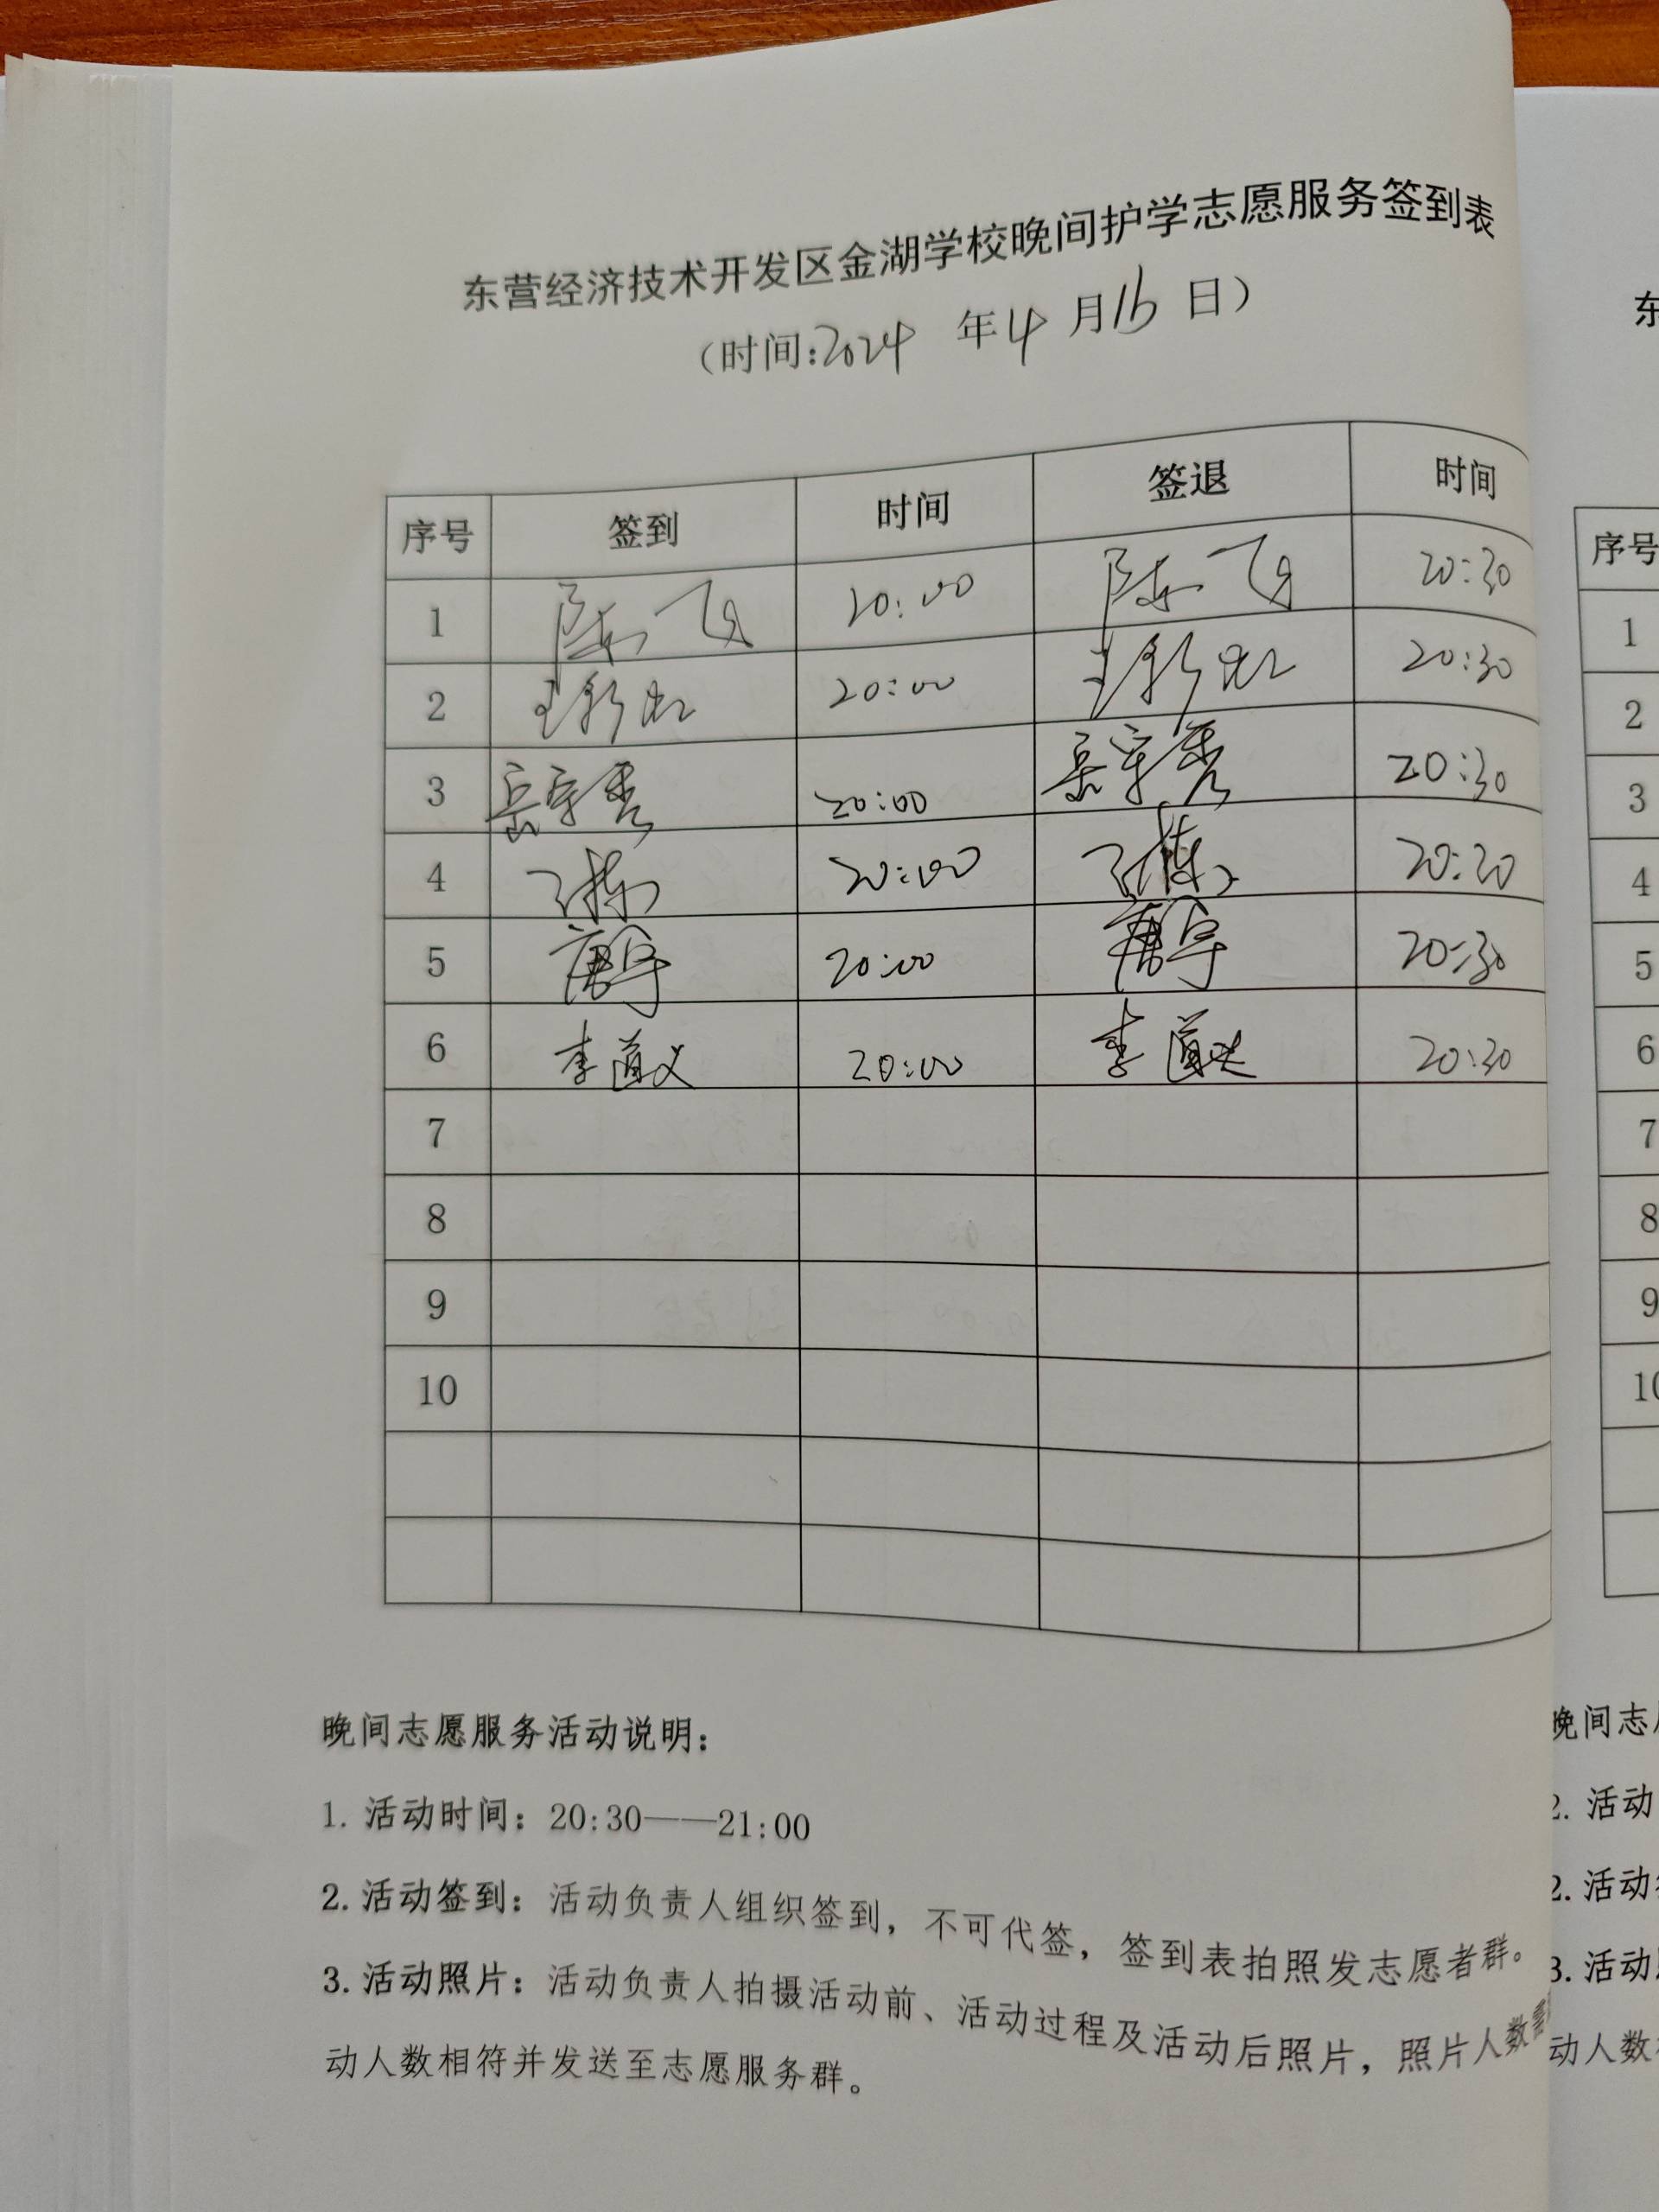 东营经济技术开发区金湖学校晚间护学志愿服务签到表
（时间:2024 年4 月16 日）
序号 签到 时间 签退 时间
1 陈飞 20:00 陈飞 20:30
2 20:00 20:30
3 岳宗秀 20:00 岳宗秀 20:30
4 20:00 20:30
5 20:00 20:30
6 李道义 20:00 李道义 20:30
7
8
9
10
晚间志愿服务活动说明：
1. 活动时间：20:30——21:00
2. 活动签到：活动负责人组织签到，不可代签，签到表拍照发志愿者群。
3. 活动照片：活动负责人拍摄活动前、活动过程及活动后照片，照片人数需
动人数相符并发送至志愿服务群。
东
序号
1
2
3
4
5
6
7
8
9
10
晚间志
2. 活动
2. 活动
3. 活动
动人数